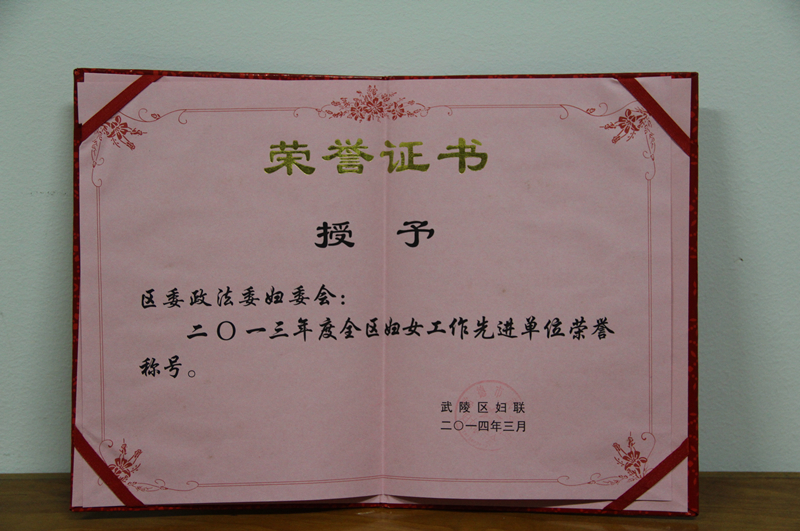 荣誉证书
授予
区委政法委妇委会：
二〇一三年度全区妇女工作先进单位荣誉
称号。
武陵区妇联
二〇一四年三月